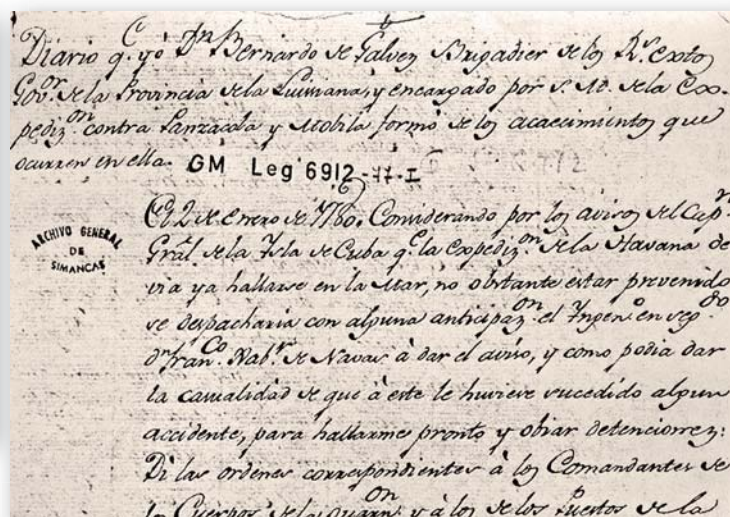 Diario q.e yo Dn. Bernardo de Galvez Brigadier de los Rs. extos
Gov.or de la Provincia de la Luisiana, y encargado por S. M. de la Ex-
pediz.on contra Panzacola y Mobila formo de los acaecimientos que
ocurren en ella.
GM Leg 6912
ARCHIVO GENERAL
DE
SIMANCAS
El 2 de Enero de 1780. Considerando por los avisos del Cap.n
Grál de la Isla de Cuba q.e la expediz.on de la Havana de
via ya hallarse en la Mar, no obstante estar prevenido
se despacharia con alguna anticipaz.on el Ingen.o en seg.do
dn. Fran.co Nab.r de Navas à dar el aviso, y como podia dar
la casualidad de que à este le huviese sucedido algun
accidente, para hallarme pronto y obiar detenciones:
Di las ordenes correspondientes à los Comandantes de
los Cuerpos de la Guarn.on y à los de los Puestos de la